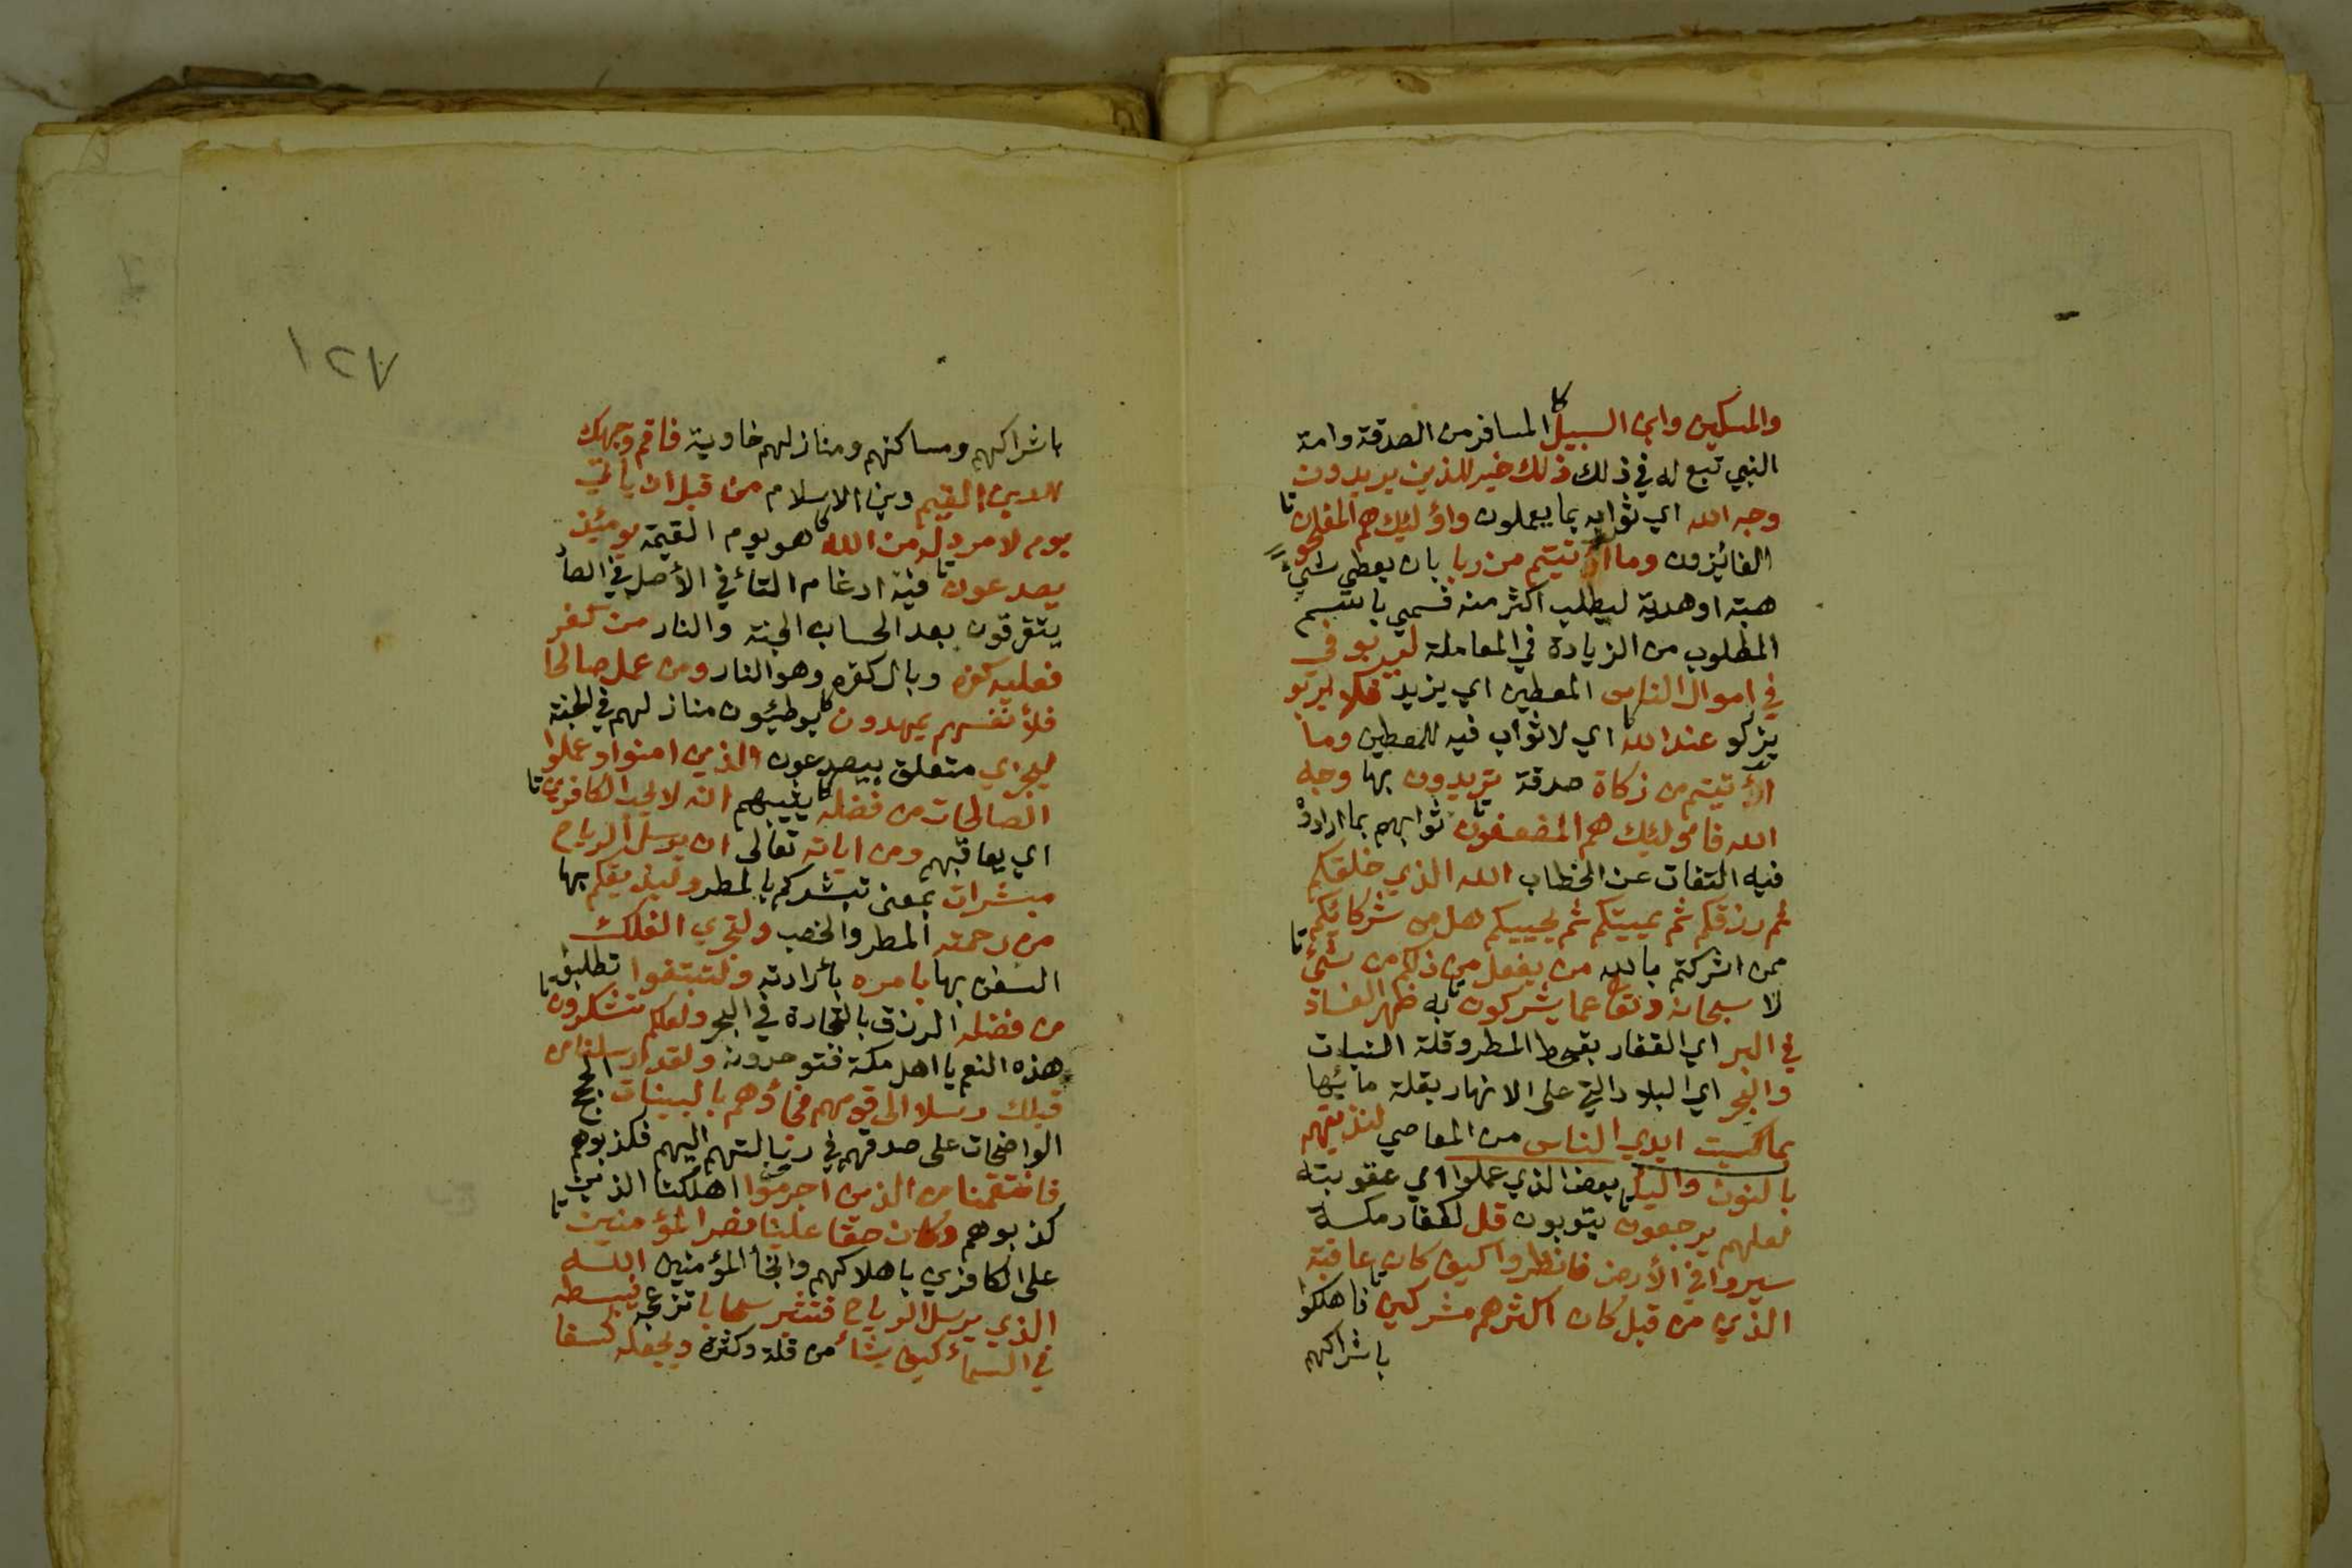 والمسكين وابن السبيل المسافر من الصدقة وامة
النبي تبع له في ذلك ذلك خير للذين يريدون
وجه الله اي ثوابه بما يعملون واؤلئيك هم المفلحون
الفائيزون وما اؤتيتم من ربا بان يعطي شيء
هبة او هدية ليطلب اكثر منه فسمي باسم
المطلوب من الزيادة في المعاملة ليربو في
في اموال الناس المعطين اي يزيد فلا يربو
يزكو عند الله اي لا ثواب فيه للمعطين وما
اؤتيتم من زكاة صدقة تريدون بها وجه
الله فاؤلئيك هم المضعفون ثوابهم بما ارادوه
فيه التفات عن الخطاب الله الذي خلقكم
ثم رزقكم ثم يميتكم ثم يحييكم هل من شركائيكم
ممن اشركتم بالله من يفعل من ذلكم من شيء
لا سبحانه وتعا عما يشركون به ظهر الفساد
في البر اي القفار بقحط المطر وقلة النبات
والبحر اي البلاد التي على الانهار بقلة مائيها
بما كسبت ايدي الناس من المعاصي لنذيقهم
بالنون واليا بعض الذي عملوا اي عقوبته
لعلهم يرجعون يتوبون قل لكفار مكة
سيروا في الأرض فانظروا كيف كان عاقبة
الذين من قبل كان اكثرهم مشركين فاهلكوا
باشراكهم
١٢٧
باشراكهم ومساكنهم ومنازلهم خاوية فاقم وجهك
للدين القيم دين الاسلام من قبل ان يأتي
يوم لا مرد له من الله هو يوم القيمة يومئيذ
يصدعون فيه ادغام التأ في الأصل في الصاد
يتفرقون بعد الحساب الجنة والنار من كفر
فعليه كفره وبال كفره وهو النار ومن عمل صالحا
فلأنفسهم يمهدون يوطئيون منازلهم في الجنة
ليجزي متعلق بيصدعون الذين امنوا وعملوا
الصالحات من فضله يثيبهم انه لا يحب الكافرين
اي يعاقبهم ومن اياته تعالى ان يرسل الرياح
مبشرات بمعنى تبشركم بالمطر وليذيقكم بها
من رحمته المطر والخصب ولتجري الفلك
السفن بها بامره بأرادته ولتبتغوا تطلبوا
من فضله الرزق بالتجارة في البحر ولعلكم تشكرون
هذه النعم يا اهل مكة فتوحدونه ولقد ارسلنا من
قبلك رسلا الى قومهم فجاؤهم بالبينات بالحجج
الواضحات على صدقهم في رسالتهم اليهم فكذبوهم
فانتقمنا من الذين اجرموا اهلكنا الذين
كذبوهم وكان حقا علينا نصر المؤمنين
على الكافرين باهلاكهم وانجأ المؤمنين الله
الذي يرسل الرياح فتثير سحابا تزعجه فيبسطه
في السمأ كيف يشأ من قلة وكثرة ويجعله كسفا